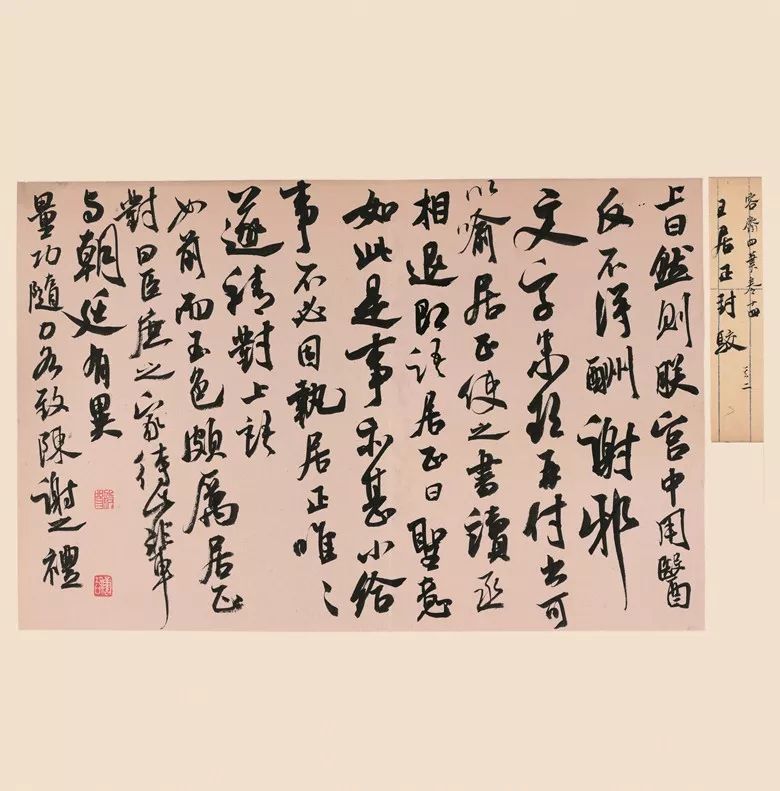 容齋四筆卷十四
王居正封駁 其二
上曰然則朕宮中用醫
反不得酬謝邪
文字未欲再付出可
以喻居正使之書讀丞
相退即語居正曰聖意
如此是事亦甚小給
事不必固執居正唯〻
遂請對上語
如前而玉色頗厲居正
對曰臣庶之家待此輩
与朝廷有異
量功隨力各致陳謝之禮